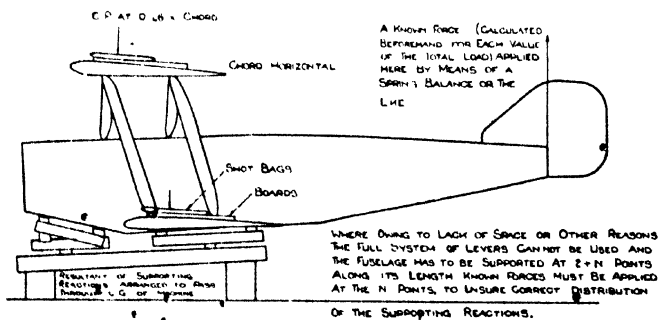 C.P. AT 0.28 × CHORD
CHORD HORIZONTAL
A KNOWN FORCE (CALCULATED
BEFOREHAND FOR EACH VALUE
OF THE TOTAL LOAD) APPLIED
HERE BY MEANS OF A
SPRING BALANCE OR THE
LIKE
SHOT BAGS
BOARDS
RESULTANT OF SUPPORTING
REACTIONS ARRANGED TO PASS
THROUGH C G OF MACHINE
WHERE OWING TO LACK OF SPACE OR OTHER REASONS
THE FULL SYSTEM OF LEVERS CANNOT BE USED AND
THE FUSELAGE HAS TO BE SUPPORTED AT 2+N POINTS
ALONG ITS LENGTH KNOWN FORCES MUST BE APPLIED
AT THE N POINTS, TO ENSURE CORRECT DISTRIBUTION
OF THE SUPPORTING REACTIONS.